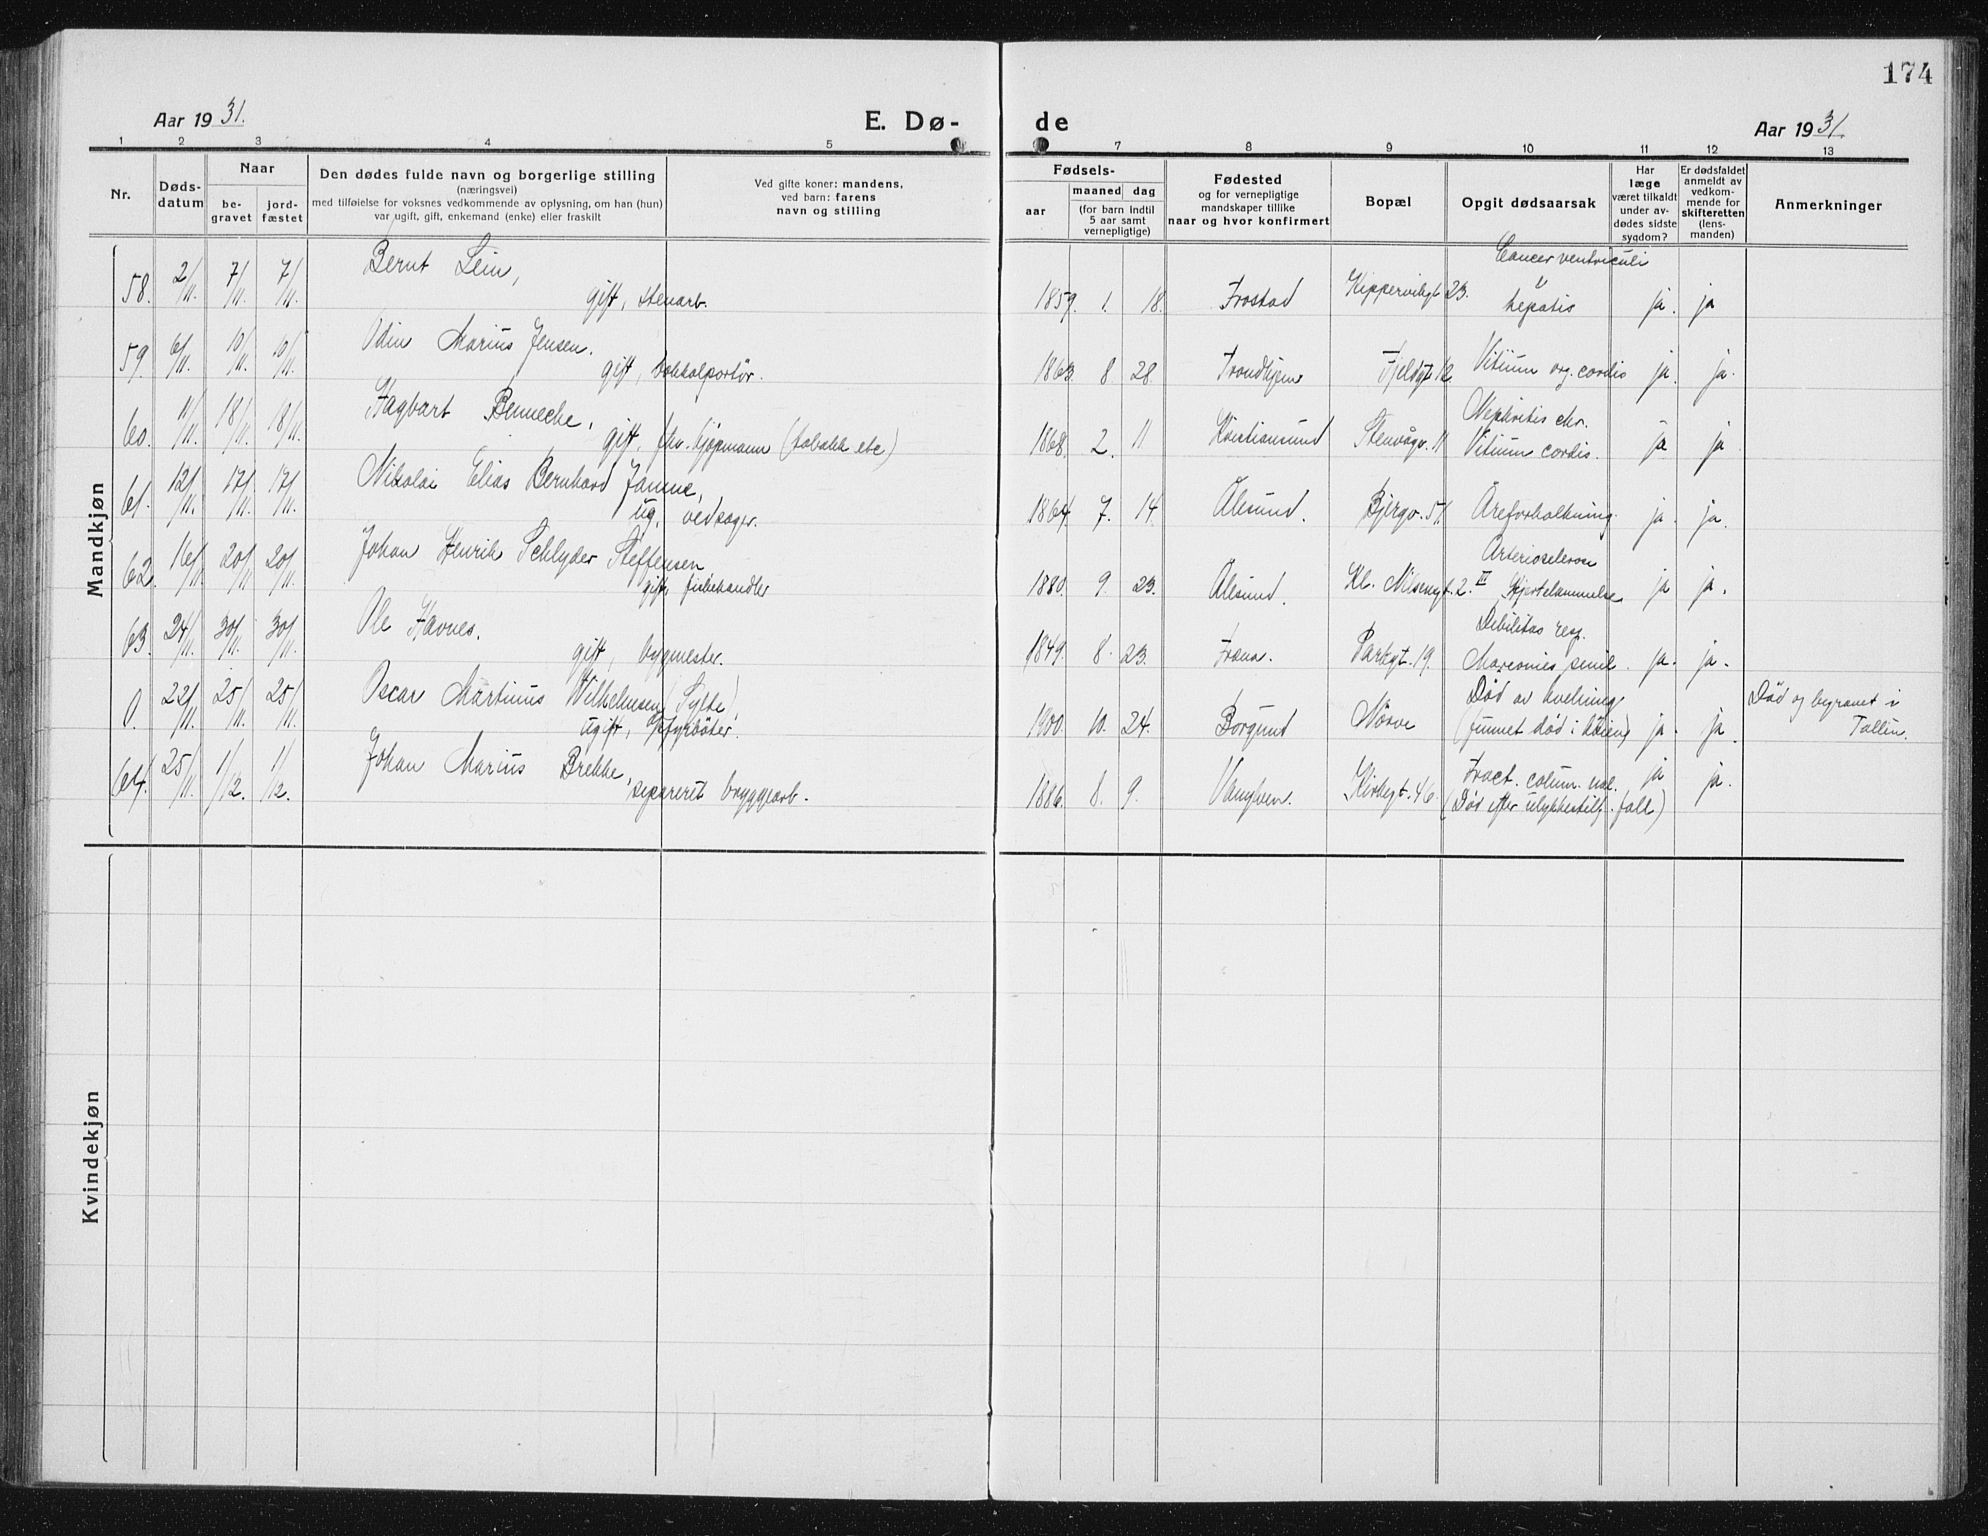 174
Aar 1931.
E. Dø-
de
Aar 1931.
1 2 3 4 5 7 8 9 10 11 12 13
Nr.
Døds-
datum
Naar
be-
gravet
jord-
fæstet
Den dødes fulde navn og borgerlige stilling
(næringsvei)
med tilføielse for voksnes vedkommende av oplysning, om han (hun)
var ugift, gift, enkemand (enke) eller fraskilt
Ved gifte koner: mandens,
ved barn: farens
navn og stilling
Fødsels-
aar
maaned dag
(for barn indtil
5 aar samt
vernepligtige)
Fødested
og for vernepligtige
mandskaper tillike
naar og hvor konfirmert
Bopæl
Opgit dødsaarsak
Har
læge
været tilkaldt
under av-
dødes sidste
sygdom?
Er dødsfaldet
anmeldt av
vedkom-
mende for
skifteretten
(lens-
manden)
Anmerkninger
Mandkjøn
Bernt Lein, Cancer ventriculi
58. 2/11. 7/11. 7/11. gift, stenarb. 1859. 1. 18. Frostad Kippervikgt 23. hepatis ja. ja
Odin Marius Jensen.
59. 6/11. 10/11. 10/11. gift, 1863. 8. 28. Trondhjem Fjeldgt 12. Vitium org. cordis ja. ja.
Hagbart Bennecke, Nephritis chr.
60. 11/11. 18/11. 18/11. gift, fhv. kjøpmann (tobakk etc) 1868. 2. 11 Kristiansund Stenvågv. 11 Vitium cordis. ja ja
Nikolai Elias Bernhard
61. 12/11. 17/11. 17/11. ug, vedsager. 1864. 7. 14. Ålesund. Bjergv. 51. Åreforkalkning. ja. ja.
Johan Henrik Schlyder Steffensen Arteriosclerose
62. 16/11. 20/11. 20/11. gift, fiskehandler 1880. 9. 23. Ålesund. Kl. 2. III Hjertelammelse ja ja.
Ole Havnes. Debilitas resp.
63. 24/11. 30/11. 30/11. gift, bygmester. 1849. 8. 23. Fræna. Parkgt. 19. senil. ja. ja.
Oscar Martinus Wilhelmsen (Sylte), Død av kvelning Død og begravet i
0. 22/11. 25/11. 25/11. ugift, fyrbøter. 1900. 10. 24. Borgund Nørve (funnet død i køien) ja. ja. Tallin.
Johan Marius Brekke, Fract. colum. ja
64. 25/11. 1/12. 1/12. separert bryggearb. 1886. 8. 9. Vanylven. Kirkegt. 46. (Død efter ulykkestilf. fall) ja.
Kvindekjøn